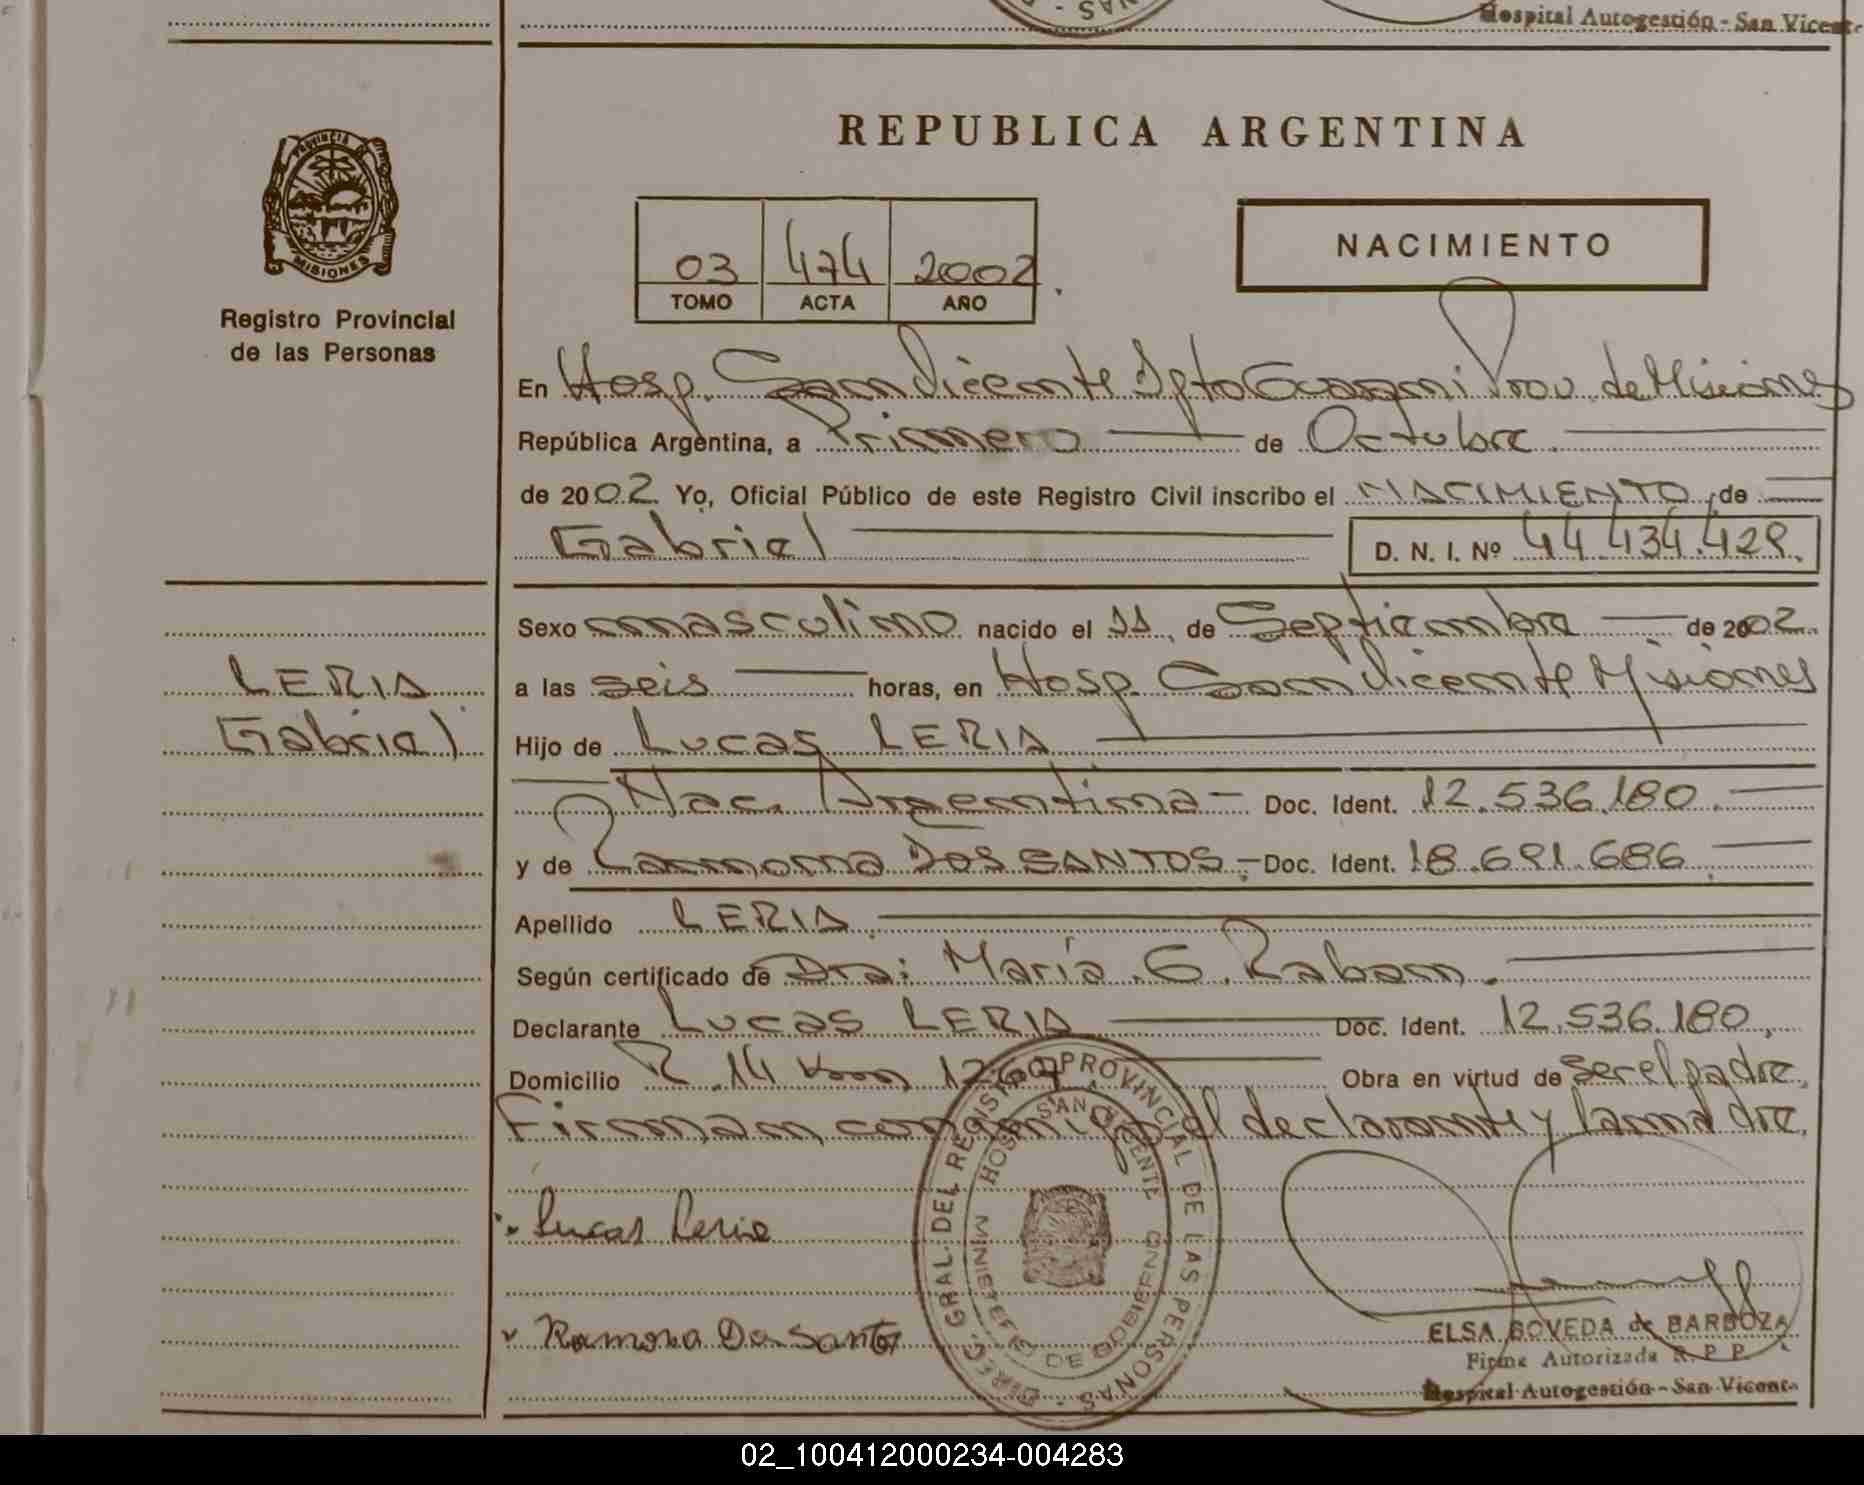 Hospital Autogestión - San Vicente
PROVINCIA DE
MISIONES
Registro Provincial
de las Personas
REPUBLICA ARGENTINA
03 474 2002
TOMO ACTA AÑO
NACIMIENTO
En Hosp. San Vicente Dpto Guaraní Prov. de Misiones
República Argentina, a Primero de Octubre
de 2002 Yo, Oficial Público de este Registro Civil inscribo el NACIMIENTO de
Gabriel D. N. I. Nº 44.434.429.
Sexo masculino nacido el 11 de Septiembre de 2002
LERIA
Gabriel
a las seis horas, en Hosp. San Vicente Misiones
Hijo de Lucas LERIA
Nac. Argentina - Doc. Ident. 12.536.180
y de Ramona DOS SANTOS - Doc. Ident. 18.691.686
Apellido LERIA
Según certificado de Dra: María G. Raban.
Declarante Lucas LERIA Doc. Ident. 12.536.180
Domicilio R. 14 km Obra en virtud de ser el padre.
Firman conmigo el declarante y la madre.
Lucas Leria
Ramona Dos Santos
DIREC. GRAL. DEL REGISTRO PROVINCIAL DE LAS PERSONAS
HOSP. SAN VICENTE
MINISTERIO DE GOBIERNO
ELSA BOVEDA de BARBOZA
Firma Autorizada R. P. P.
Hospital Autogestión - San Vicente
02_100412000234-004283